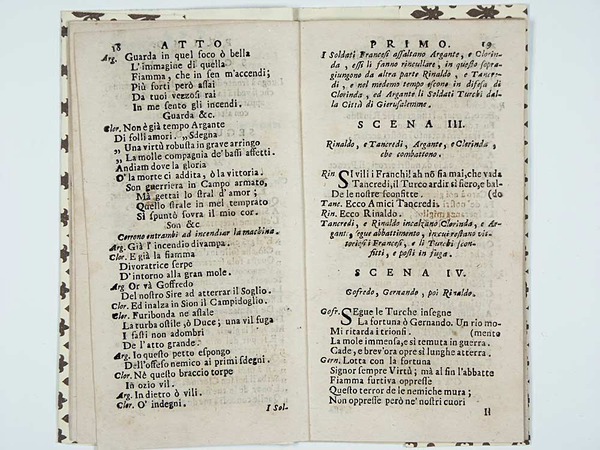 18 ATTO
Arg. Guarda in quel foco ò bella
L'immagine di quella
Fiamma, che in sen m'accendi;
Più forti però assai
Da tuoi vezzosi rai
In me sento gli incendi.
Guarda &c.
Clor. Non è già tempo Argante
Di folli amori. „Sdegna
„ Una virtù robusta in grave arringo
„ La molle compagnia de' bassi affetti.
Andiam dove la gloria
O' la morte ci addita, ò la vittoria.
Son guerriera in Campo armato,
Mà gettai lo stral d'amor;
Quello strale in mel temprato
Si spuntò sovra il mio cor.
Son &c
Corrono entrambi ad incendiar la machina.
Arg. Già l'incendio divampa.
Clor. E già la fiamma
Divoratrice serpe
D'intorno alla gran mole.
Arg Or và Goffredo
Del nostro Sire ad atterrar il Soglio.
Clor. Ed inalza in Sion il Campidoglio.
Clor. Furibonda ne assale
La turba ostile, ò Duce; una vil fuga
I fasti non adombri
De l'atto grande.
Arg. Io questo petto espongo
Dell'offeso nemico ai primi sdegni.
Clor. Nè questo braccio torpe
In ozio vil.
Arg. In dietro ò vili.
Clor. O' indegni.
I Sol-
PRIMO. 19
I Soldati Francesi assaltano Argante, e Clorin-
da, essi li fanno rincullare, in questo sopra-
giungono da altra parte Rinaldo, e Tancre-
di, e nel medemo tempo escono in difesa di
Clorinda, ed Argante li Soldati Turchi dal-
la Città di Gierusalemme.
SCENA III.
Rinaldo, e Tancredi, Argante, e Clerinda,
che combattono.
Rin SI vili i Franchi! ah nō sia mai, che vada
Tancredi, il Turco ardir sì fiero, e bal-
De le nostre sconfitte. (do
Tanc. Ecco Amici Tancredi.
Rin. Ecco Rinaldo.
Tancredi, e Rinaldo incalzano Clorinda, e Ar-
gante, segue abbattimento, in cui restano vit-
toriosi i Francesi, e li Turchi scon-
fitti, e posti in fuga.
SCENA IV.
Gofredo, Gernando, poi Rinaldo.
Gofr. SEgue le Turche insegne
La fortuna ò Gernando. Un rio mo-
Mi ritarda i trionfi. (mento
La mole immensa, e sì temuta in guerra.
Cade, e brev'ora opre sì lunghe atterra.
Gern. Lotta con la fortuna
Signor sempre Virtù; mà al fin l'abbatte
Fiamma furtiva oppresse
Questo terror de le nemiche mura;
Non oppresse però ne' nostri cuori
Il